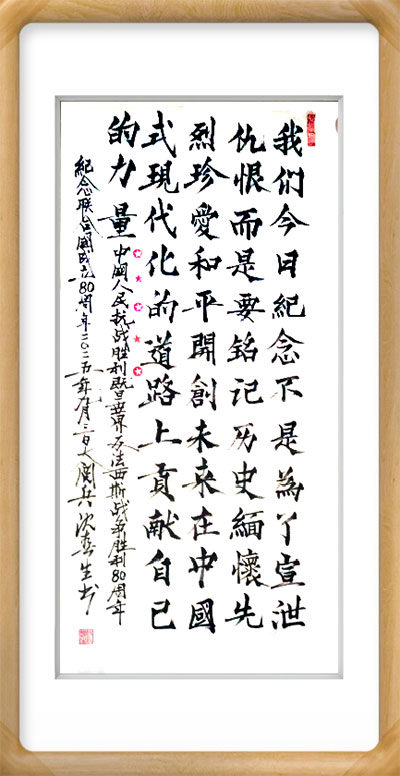 我们今日紀念不是為了宣泄
仇恨而是要铭记历史緬懷先
烈珍愛和平開創未来在中國
式現代化的道路上貢献自己
的力量
中國人民抗战胜利暨世界反法西斯战争胜利80周年
紀念联合國成立80周年二〇二五年九月三日大阅兵